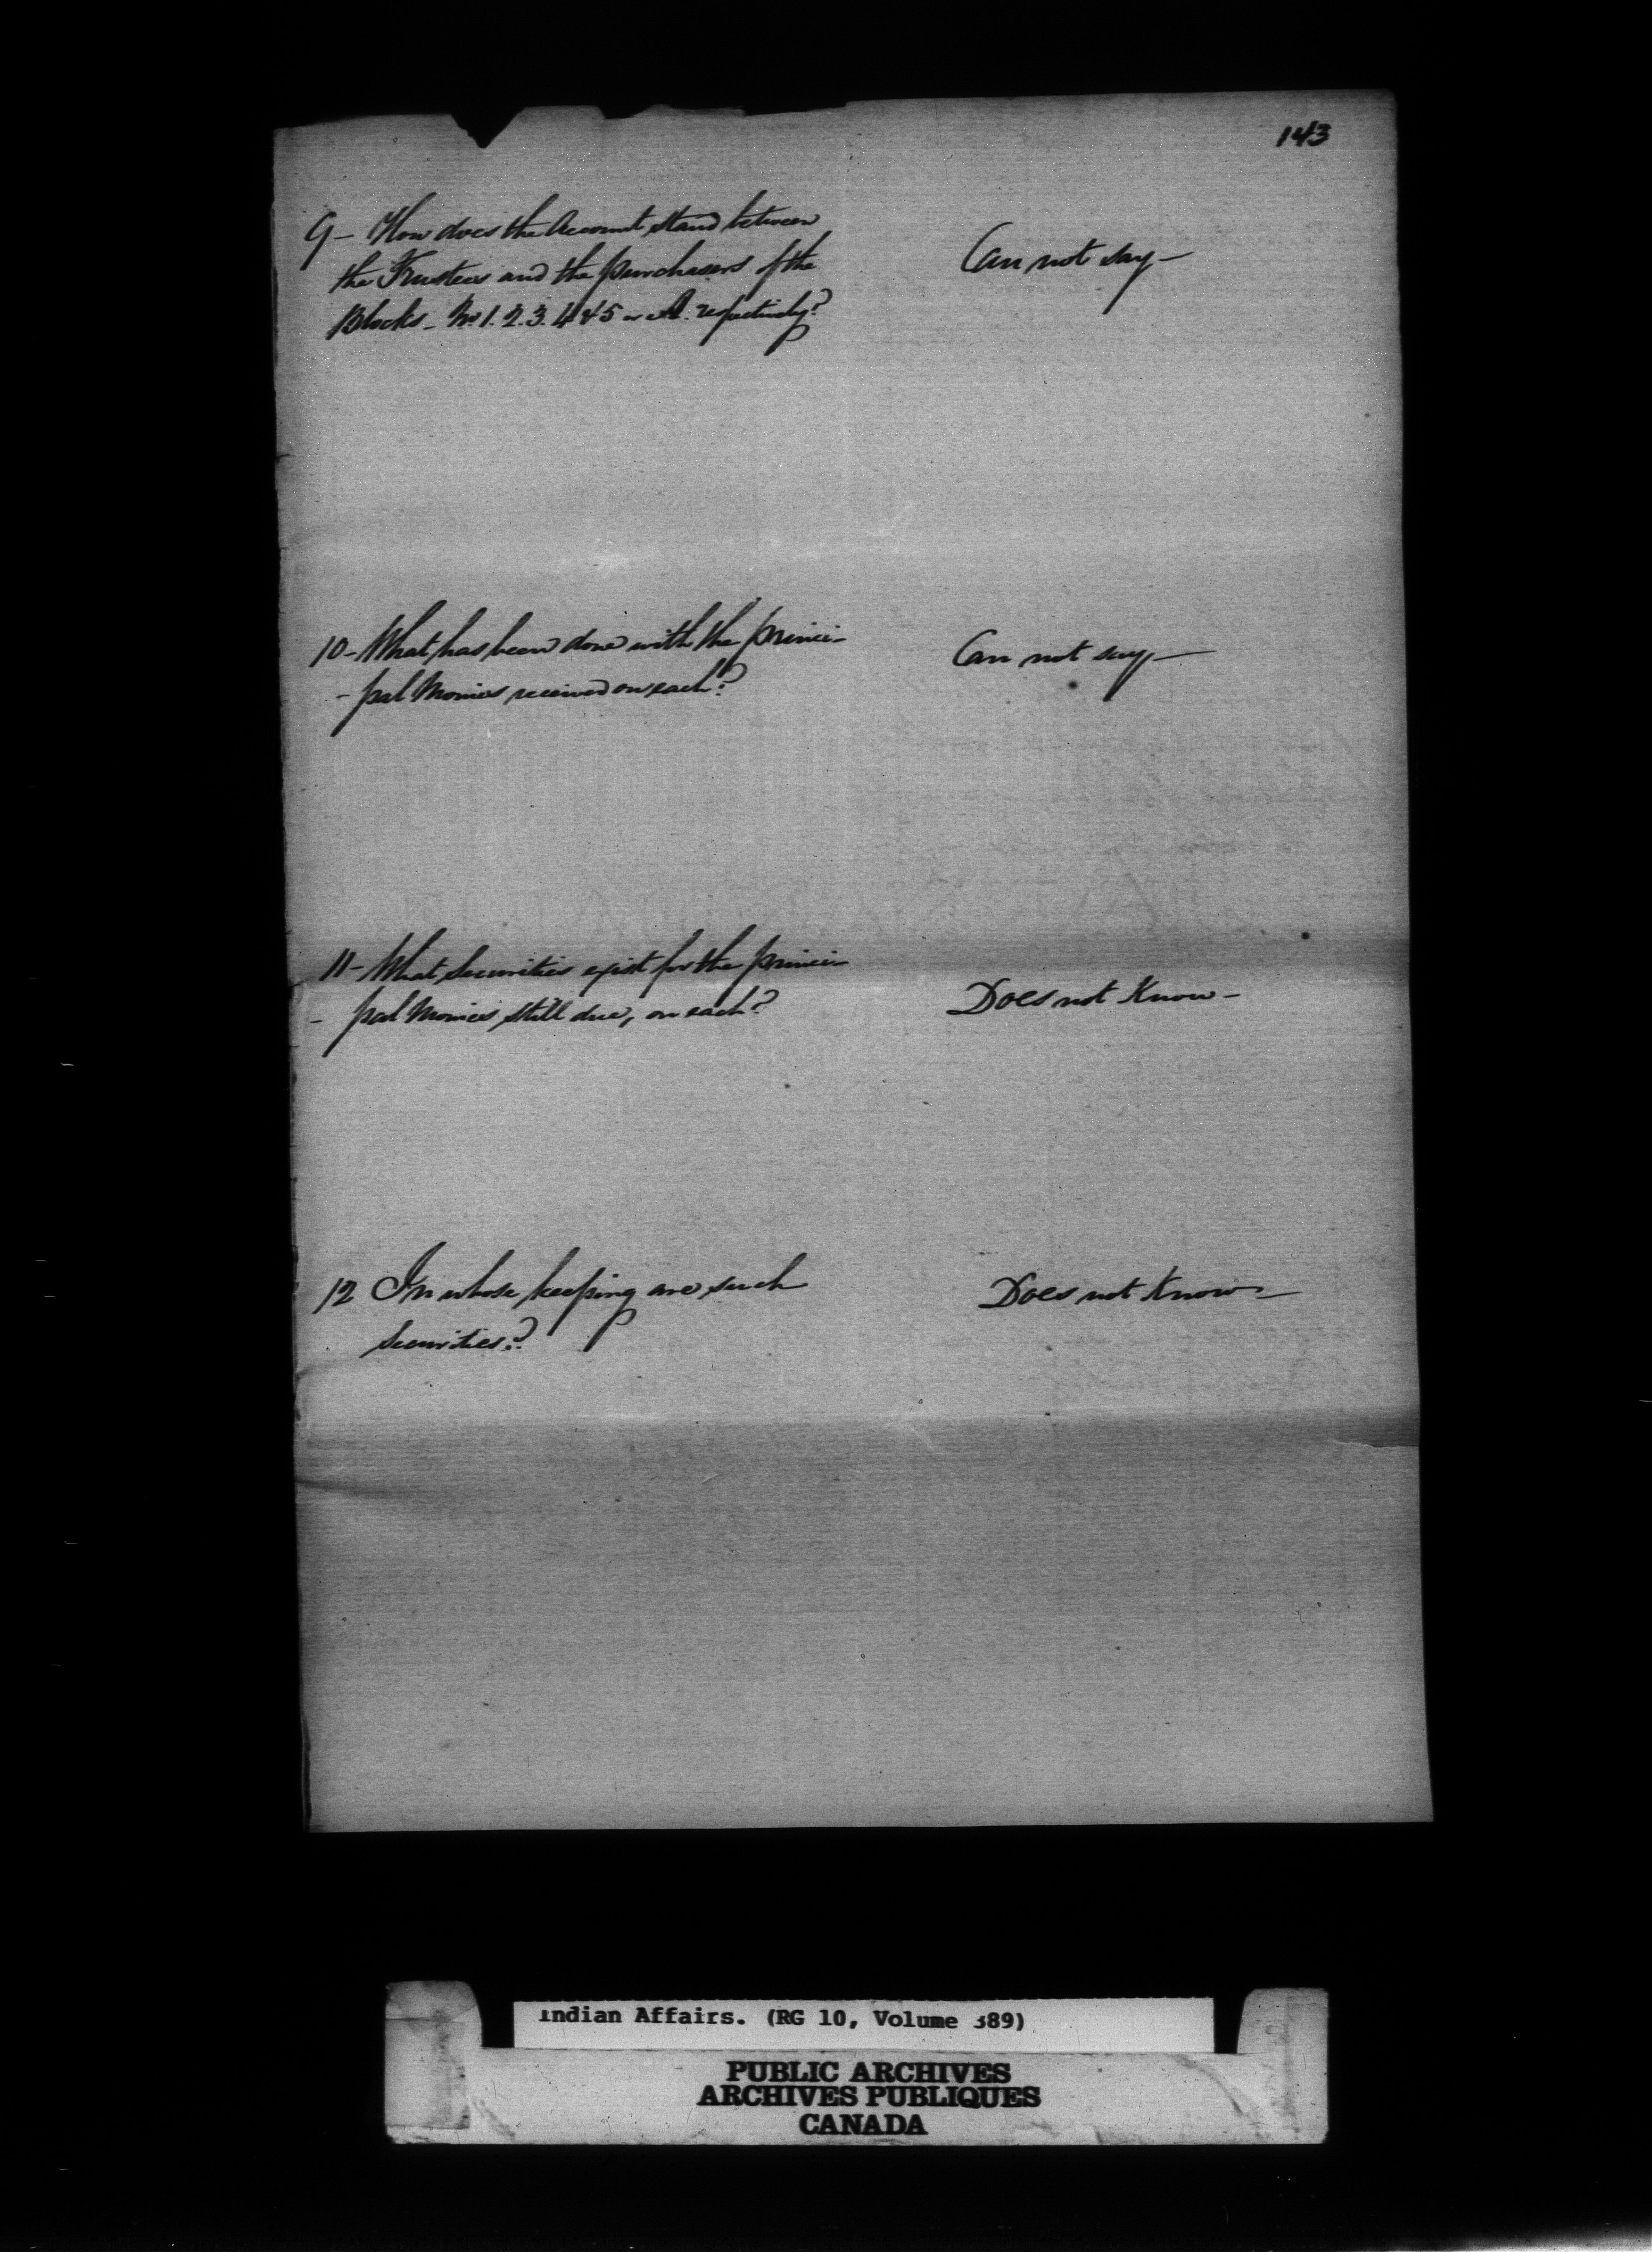 143
9 - How does the Account stand between
the Trustees and the purchasers of the
Blocks - No 1. 2. 3. 4 & 5 respectively?
Can not say -
10 - What has been done with the princi-
- pal Monies received on each?
Can not say -
11 - What Securities exist for the princi-
- pal Monies still due, on each?
Does not Know -
12 In whose keeping are such
Securities?
Does not Know -
Indian Affairs. (RG 10, Volume 389)
PUBLIC ARCHIVES
ARCHIVES PUBLIQUES
CANADA